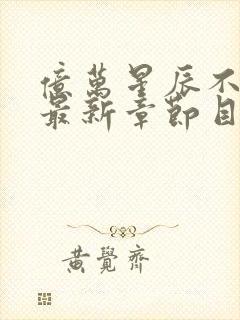 億萬星辰不
最新章節目
黃覺齊